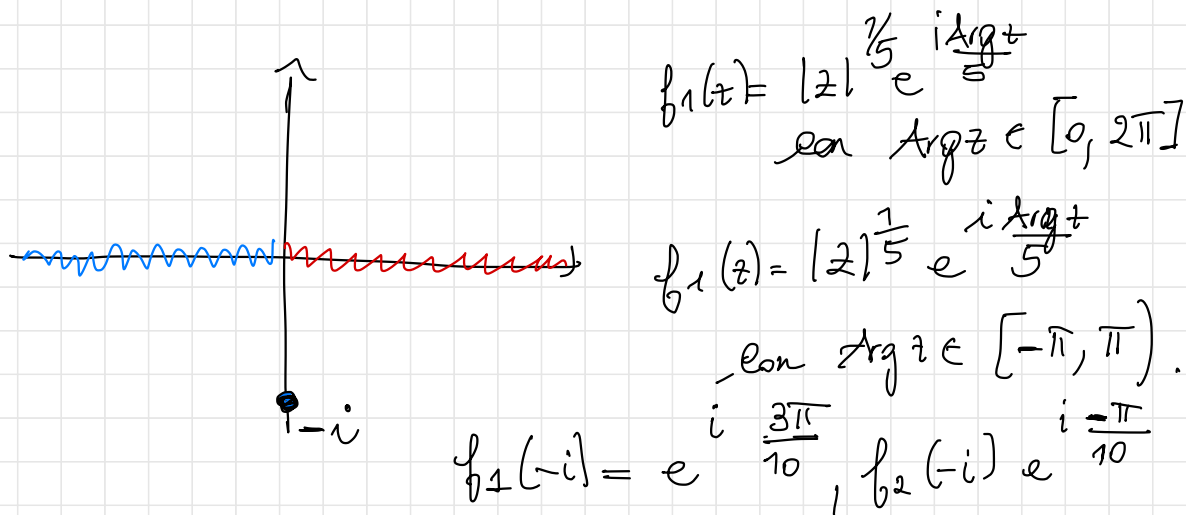 f₁(z) = |z|^{1/5} e^{i Arg z / 5}
con Arg z ∈ [0, 2π]
f₁(z) = |z|^{1/5} e^{i Arg z / 5}
con Arg z ∈ [-π, π).
-i
f₁(-i) = e^{i 3π/10}, f₂(-i) e^{i -π/10}